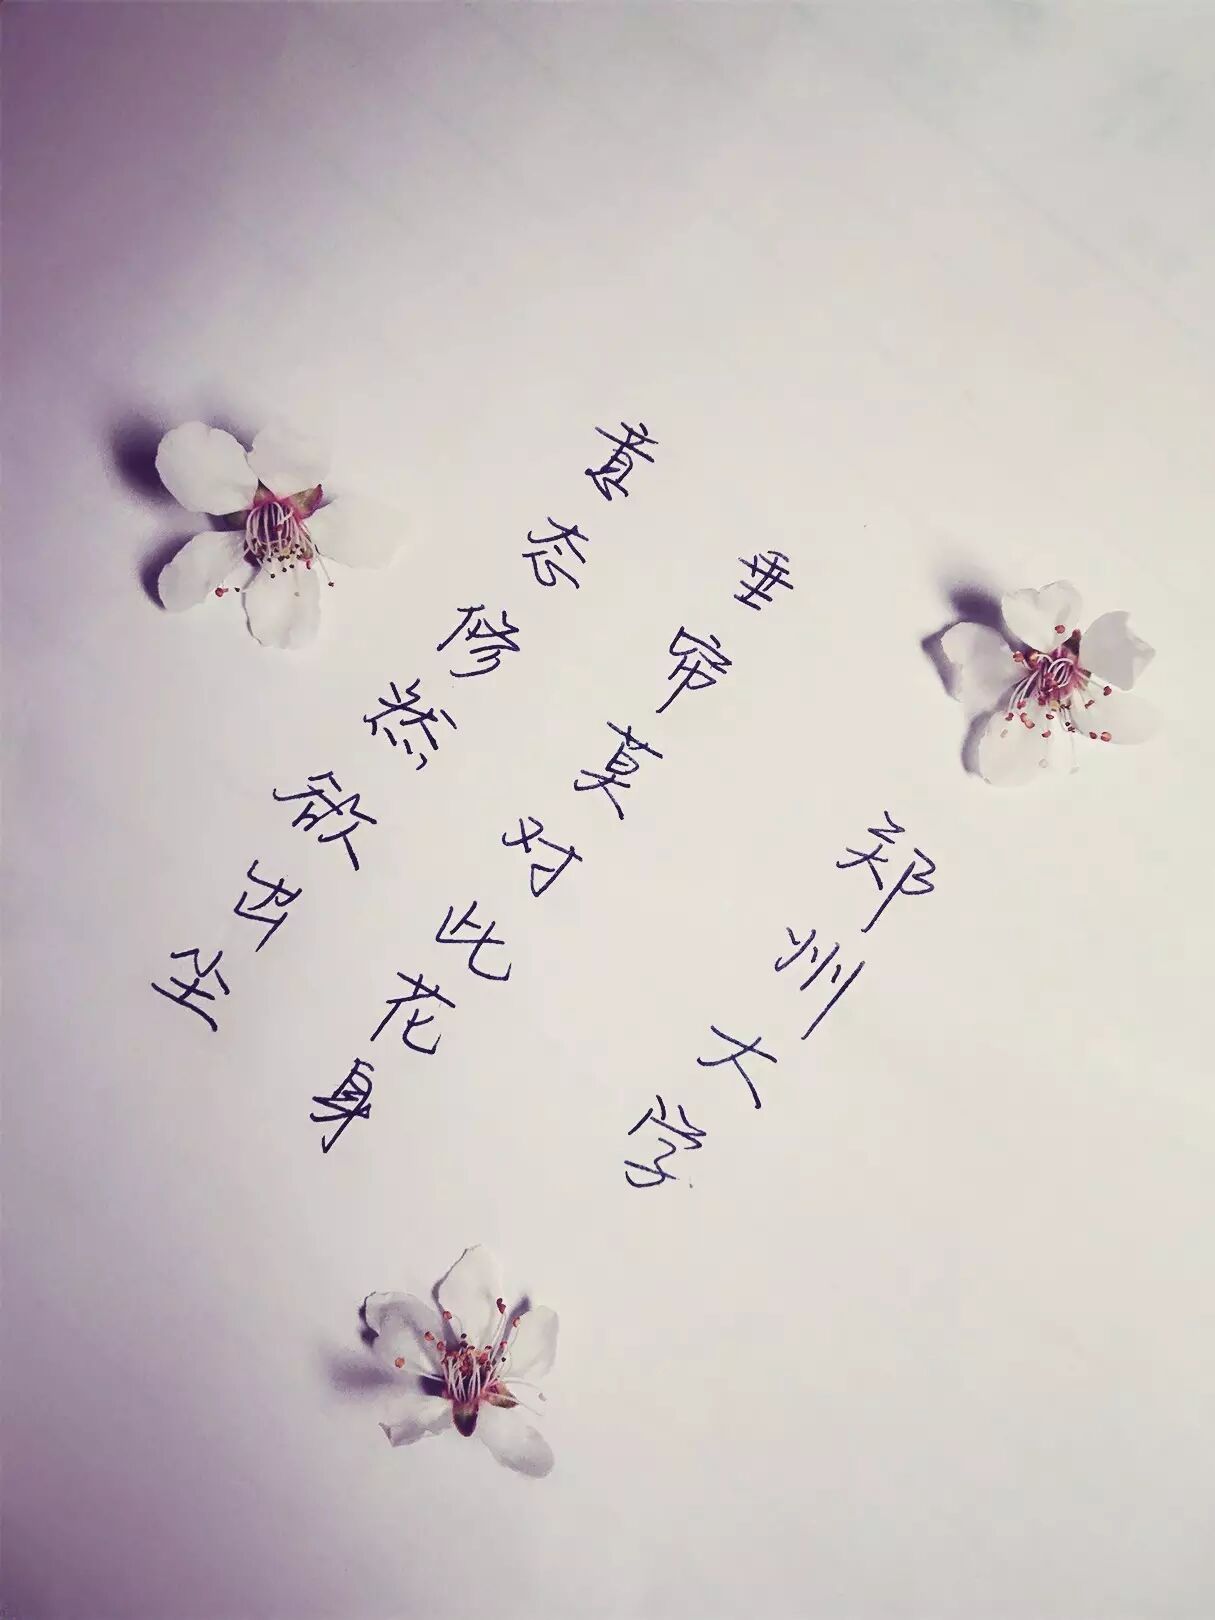 意态修然欲出尘
垂帘莫对此花身
郑州大学